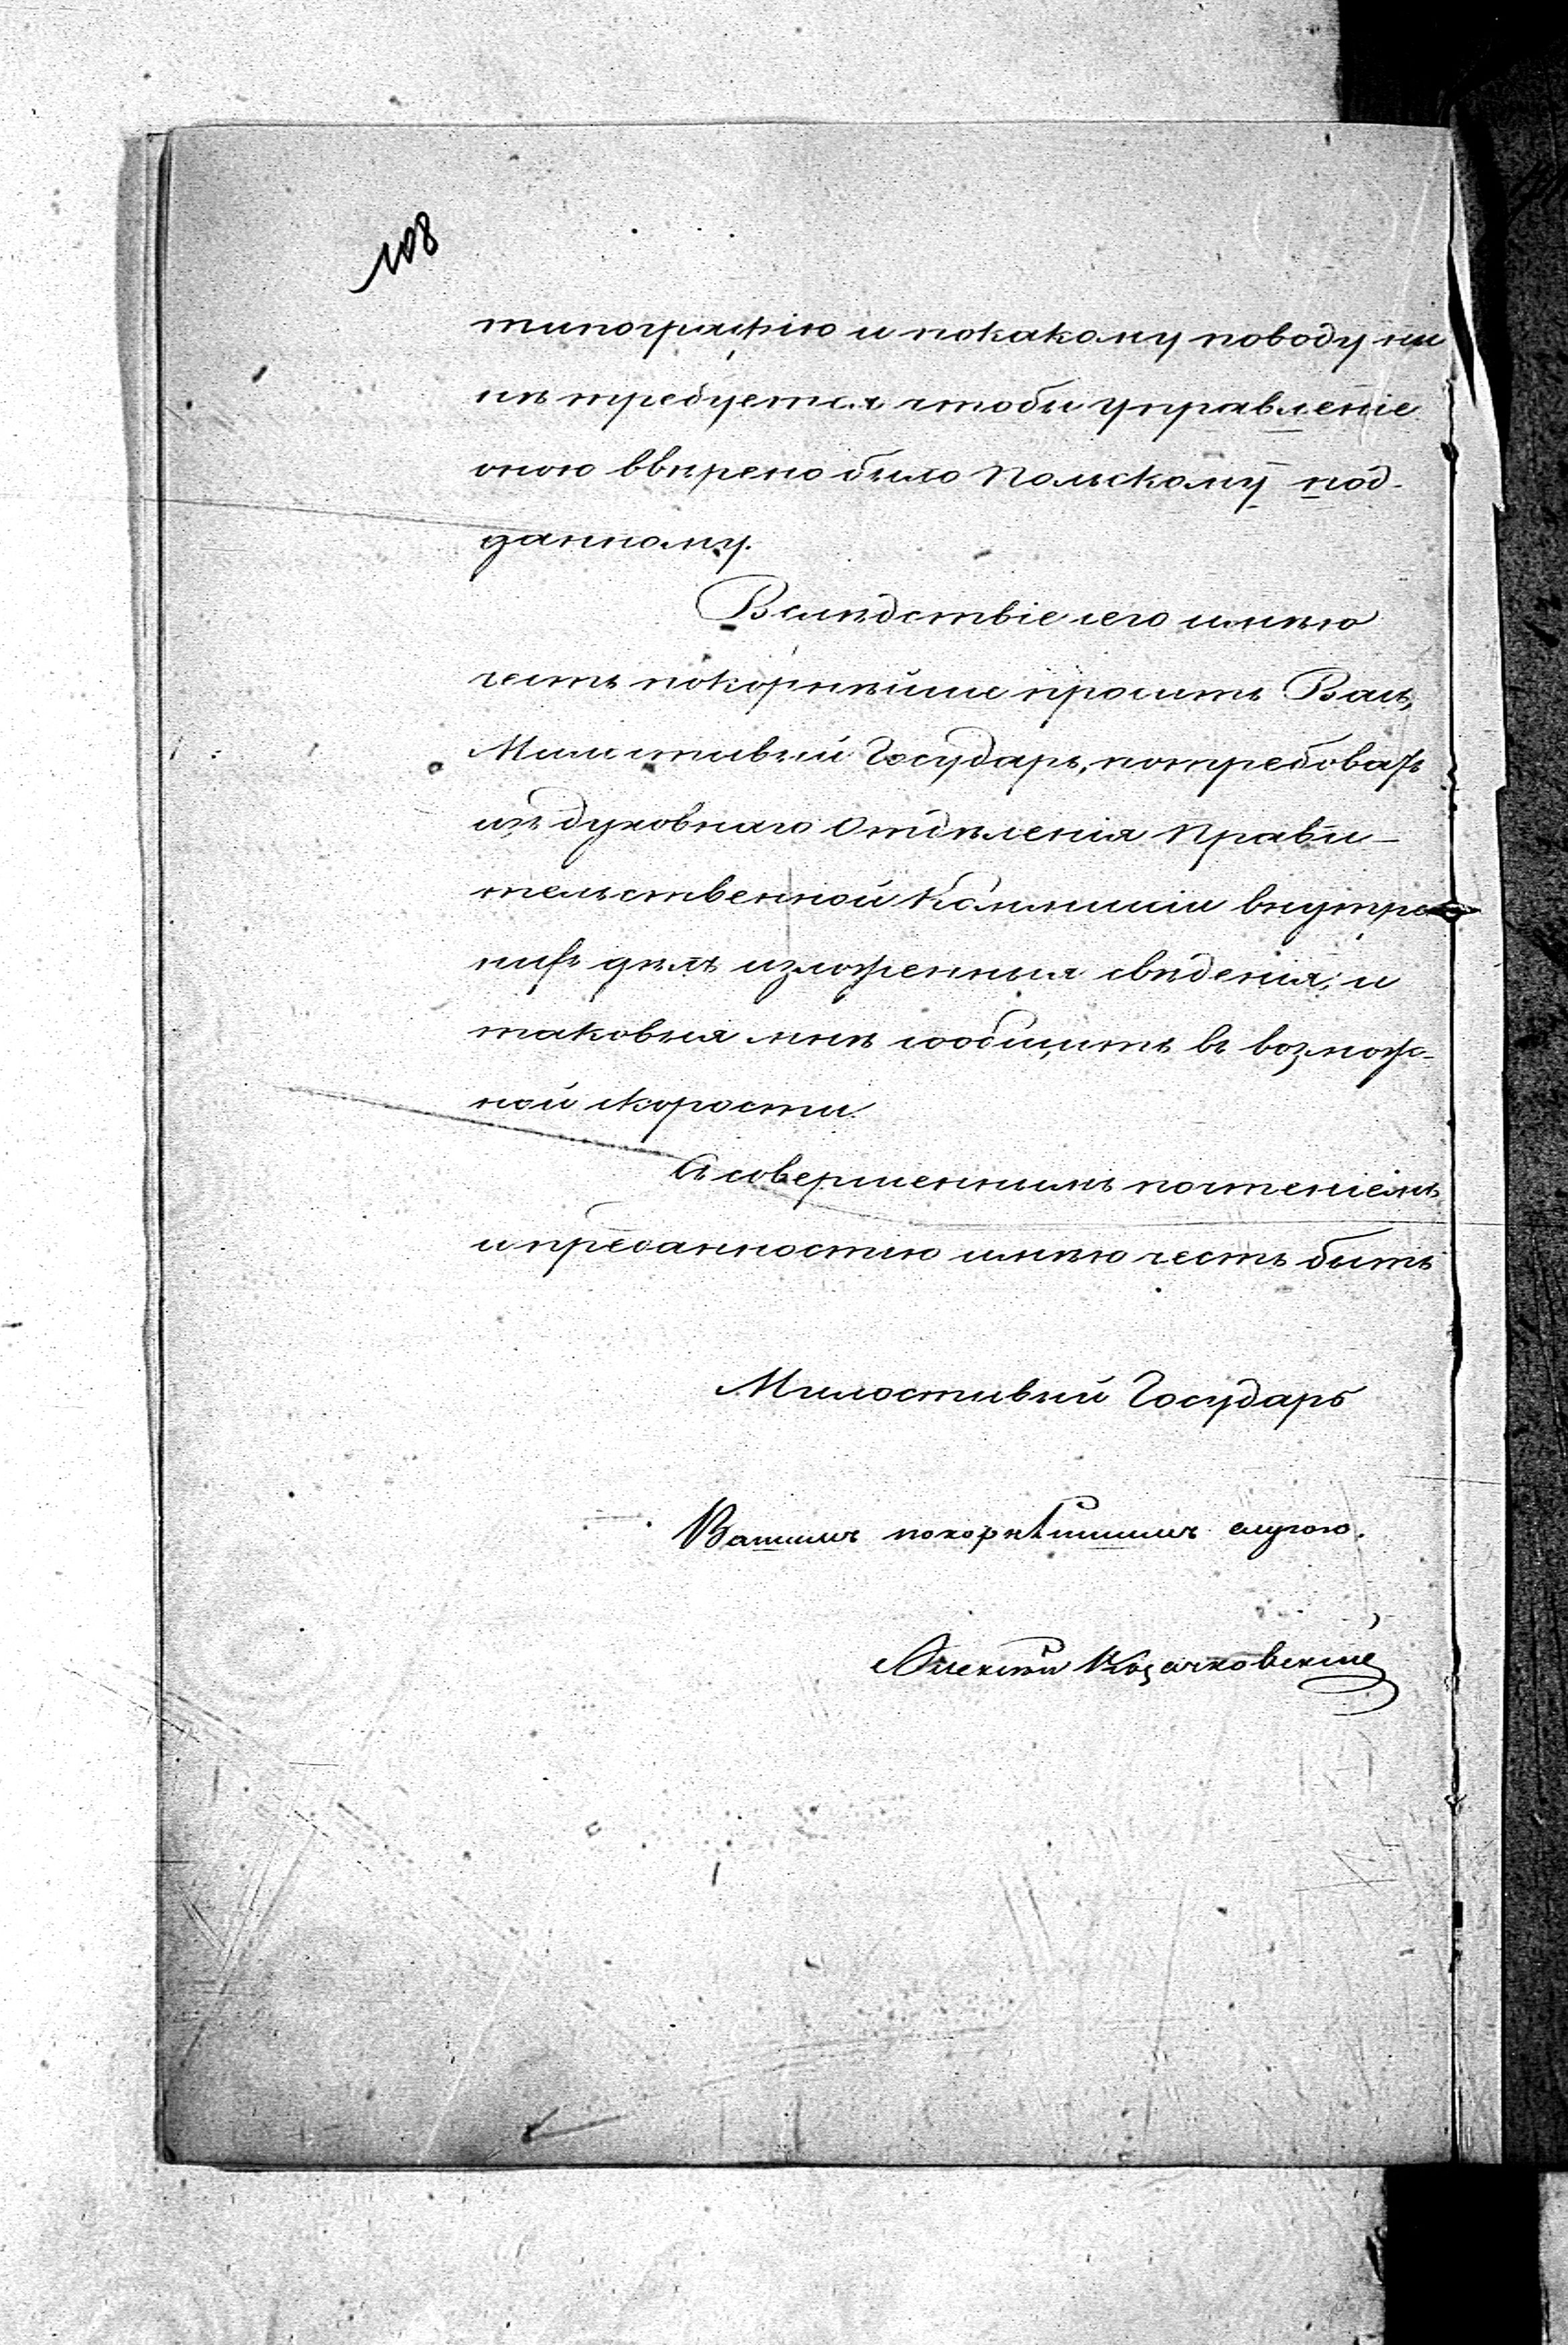 108
типографію и покакому поводу ны
нѣ требуется чтобы управленіе
оною ввѣрено было Польскому под-
данному.
Вслѣдствіе сего имѣю
честь покорнѣйше просить Васъ,
Милостивый Государь, потребовать
изъ духовнаго Отдѣленія Прави-
тельственной Коммисіи внутре
нихъ дѣлъ изложенныя свѣденія, и
таковыя мнѣ сообщить въ возмож-
ной скорости.
Съ совершеннымъ почтеніемъ
и преданностію имѣю честь быть
Милостивый Государь
Вашимъ покорнѣйшимъ слугою.
Алексѣй